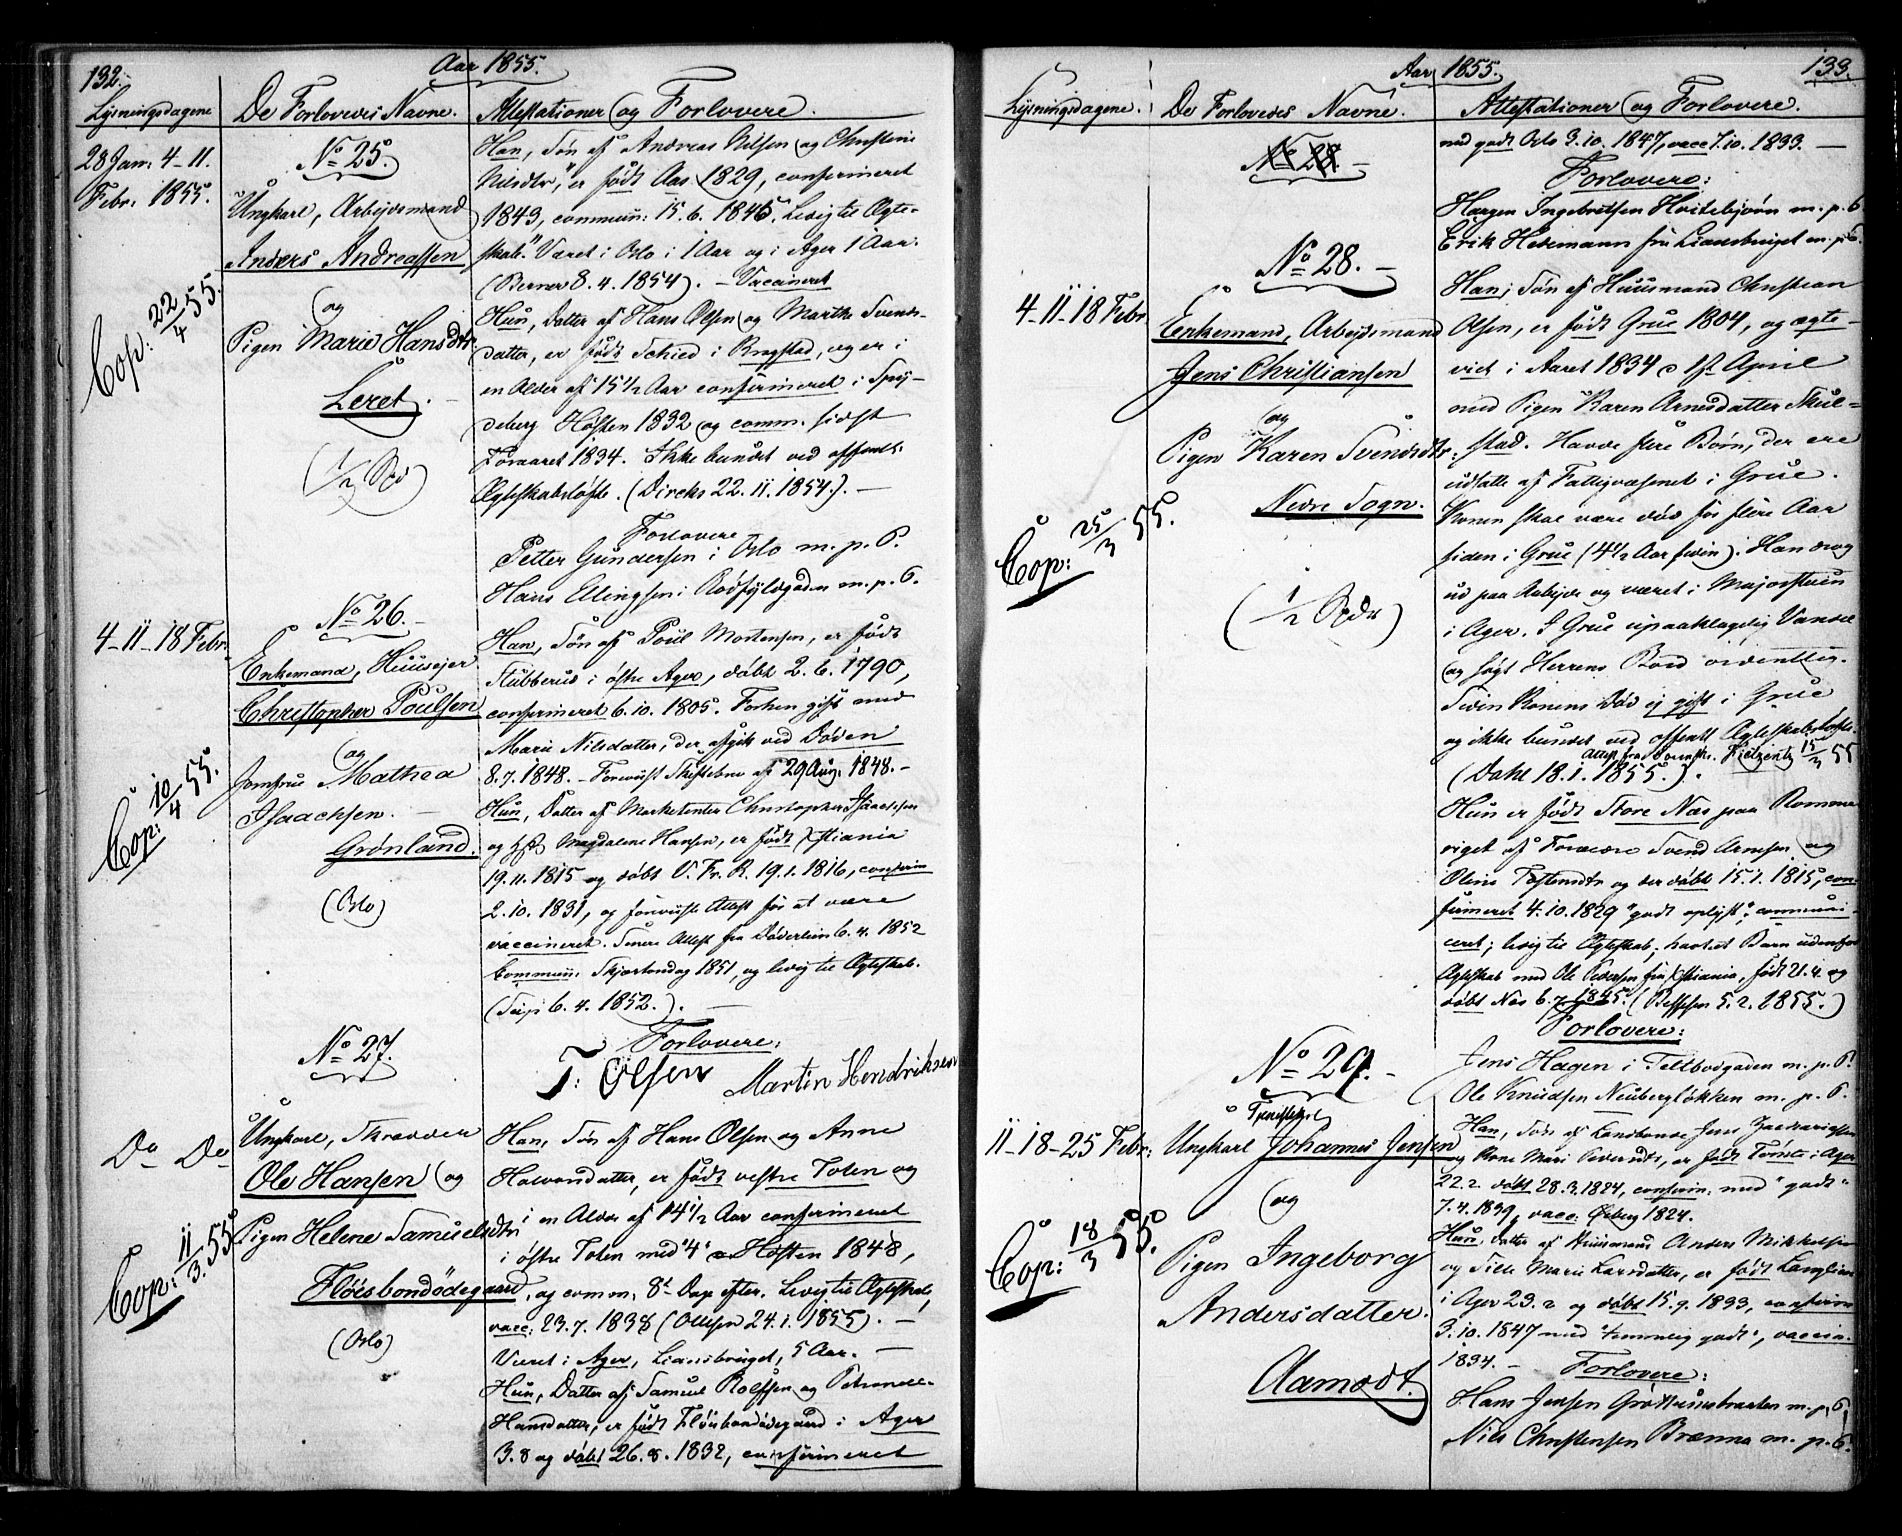 132.
Aar 1855.
Lysningsdagene
De Forlovedes Navne.
Attestationer og Forlovere.
28 Jan: 4-11.
Febr. 1855.
No 25.
Ungkarl, Arbejdsmand
Anders Andreassen
og
Pigen Marie Hansdtr
Leret.
(1/2 Spd)
Cop: 22/4 55.
Han, Søn af Andreas Nilsen og Christine
Nilsdtr, er født Aas 1829, confirmeret
1843, commun: 15.6.1845. Ledig til Ægte-
skab." Været i Oslo i 1 Aar og i Ager 1 Aar.
(Berner 8.4.1854). - Vaccineret
Hun, Datter af Hans Olsen og Marthe Svends-
datter, er født Schied i Krogstad, og er i
en Alder af 15 1/2 Aar confirmeret i Spy-
deberg Høsten 1832 og comm. sidst
Foraaret 1834. Ikke bundet ved offentl.
Ægteskabsløfte. (Dircks 22.11.1854.). -
Forlovere
Petter Gundersen i Oslo m. p. P.
Hans Elingsen i Rødfyldgaden m. p. P.
4-11-18 Febr.
No 26.
Enkemand, Huusejer
Christopher Poulsen
og
Jomfru Mathea
Isaachsen.
Grønland.
(Oslo)
Cop: 10/4 55.
Han, Søn af Poul Mortensen, er født
Stubberud i østre Ager, døbt 2.6.1790,
confirmeret 6.10.1805. Forhen gift med
Marie Nilsdatter, der afgik ved Døden
8.7.1848. - Foreviist Skiftebrev af 29 Aug: 1848. -
Hun, Datter af Marketenter Christopher Isaachsen
og Magdalene Hansen, er født Xstiania
19.11.1815 og døbt V. Fr. K. 19.1.1816, confirm
2.10.1831, og foreviist Attest for at være
vaccineret. Senere Attest fra Døderlein 6.4.1852
Commun: Skjærtorsdag 1851, og ledig til Ægteskab.
(6.4.1852.). -
Forlovere:
T: Olsen Martin Hendriksen
Do Do
No 27.
Ungkarl, Skrædder
Ole Hansen og
Pigen Helene Samuelsdtr
Fløisbondødegaard,
(Oslo)
Cop: 11/3. 55
Han, Søn af Hans Olsen og Anne
Halvorsdatter, er født vestre Toten og
i en Alder af 14 1/2 Aar confirmeret
i østre Toten med "4" Høsten 1848,
og comm: 8d Dage efter. Ledig til Ægteskab,
vacc: 23.7.1838 (Ottesen 24.1.1855). -
Været i Ager, Liansbruget, 5 Aar. -
Hun, Datter af Samuel Rolfsen og Petronelle
Hansdatter, er født Fløisbondødegaard i Ager
3.8 og døbt 26.8.1832, confirmeret
Aar 1855.
133.
Lysningsdagene.
De Forlovedes Navne.
Attestationer og Forlovere.
No
med godt Oslo 3.10.1847, vacc 7.10.1833. -
Forlovere:
Hargen Ingebretsen Hvitebjørn m. p. P.
Erik Hedemann fra Liansbruget m. p. P.
4-11-18 Febr
No 28. -
Enkemand, Arbejdsmand
Jens Christiansen
og
Pigen Karen Svendsdtr.
Nedre Sogn.
(1/2 Spdr)
Cop: 25/3 55.
Han, Søn af Huusmand Christian
Olsen, er født Grue 1804, og ægte-
viet i Aaret 1834 d 1st April
med Pigen Karen Arnesdatter Skul-
stad. Havde flere Børn, der ere
udsatte af Fattigvæsenet i Grue.
Konen skal være død for flere Aar
siden i Grue (4 1/2 Aar siden). Han drog
ud paa Arbejde og været i Majorstuen
i Ager. I Grue upaaklagelig Vandel
og søgt Herrens Bord ordentlig.
Siden Konens Død ej gift i Grue
og ikke bundet ved offentl Ægteskabsløfte.
Attest fra 15/3 55
(Dahl 18.1.1855.).
Hun er født Store Næs paa Romme-
riget af Forældre Svend Arnesen og
Oline Tostensdtr og der døbt 15.1.1815, con-
firmeret 4.10.1829 "godt oplyst", communi-
ceret; ledig til Ægteskab; havt et Barn udenfor
Ægteskab med Ole Pedersen fra Xstiania, født 21.4 og
døbt Næs 6.7.1845. (5.2.1855.)
Forlovere:
Jens Hagen i Toldbodgaden m. p. P.
Ole Knudsen Neubergløkken m. p. P.
11-18-25 Febr:
No 29. -
Ungkarl Johannes Jensen
og
Pigen Ingeborg
Andersdatter.
Aamodt.
Cop: 18/3 55.
Han, Søn af Landbonde Jens
og Kone Mari, er født i Ager
22.2. døbt 28.3.1824, confirm: med "godt"
7.4.1839, vacc: Øxberg 1824.
Hun, Datter af Huusmand Anders Mikkelsen
og Sille Marie Larsdatter, er født Langlien
i Ager 23.2 og døbt 15.9.1833, confirm
3.10.1847 med "temmelig godt", vaccin.
1834. -
Forlovere:
Hans Jensen m. p. P.
Nils Christensen Brænna m. p. P.